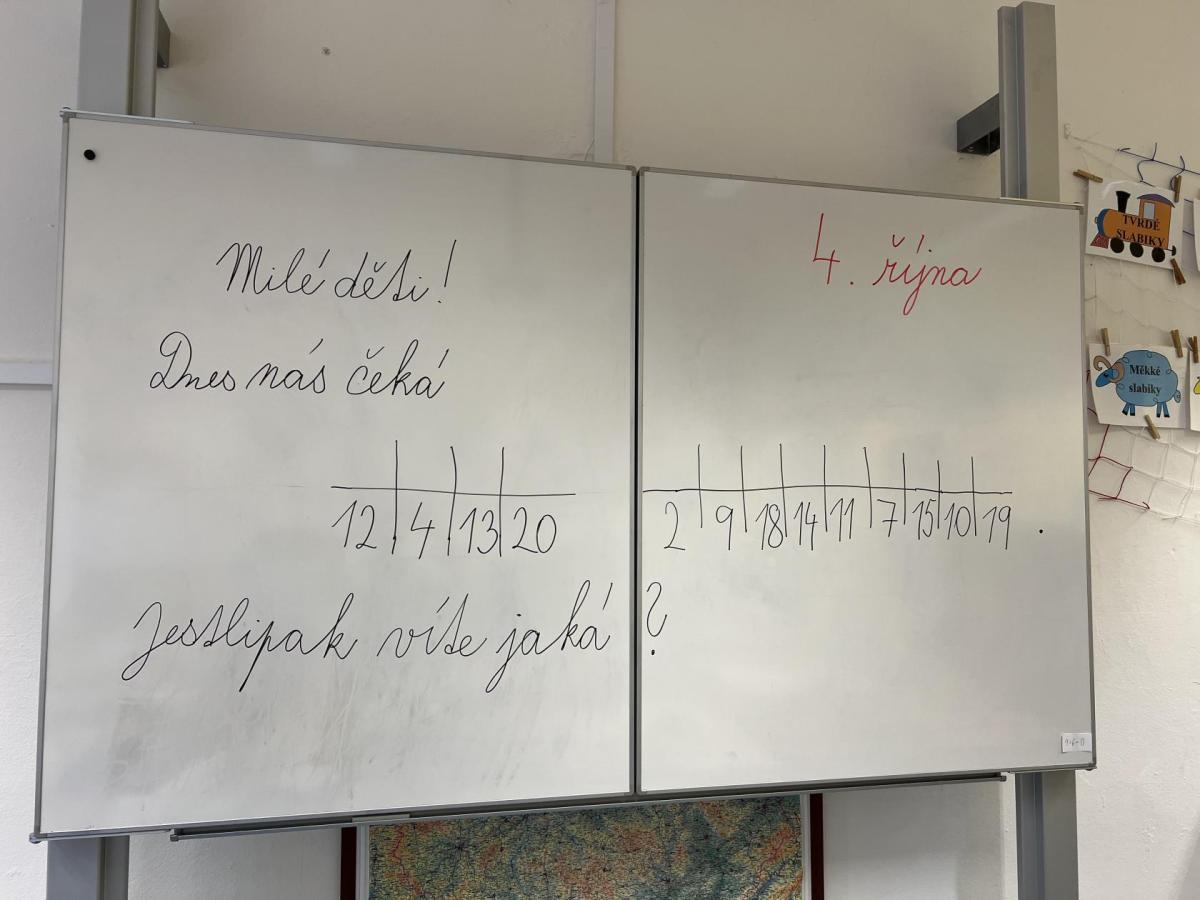 Milé děti!
4. října
Dnes náš čeká
12 4 13 20 2 9 18 14 11 7 15 10 19 .
Jestlipak víte jaká ?
TVRDÉ
SLABIKY
Měkké
slabiky